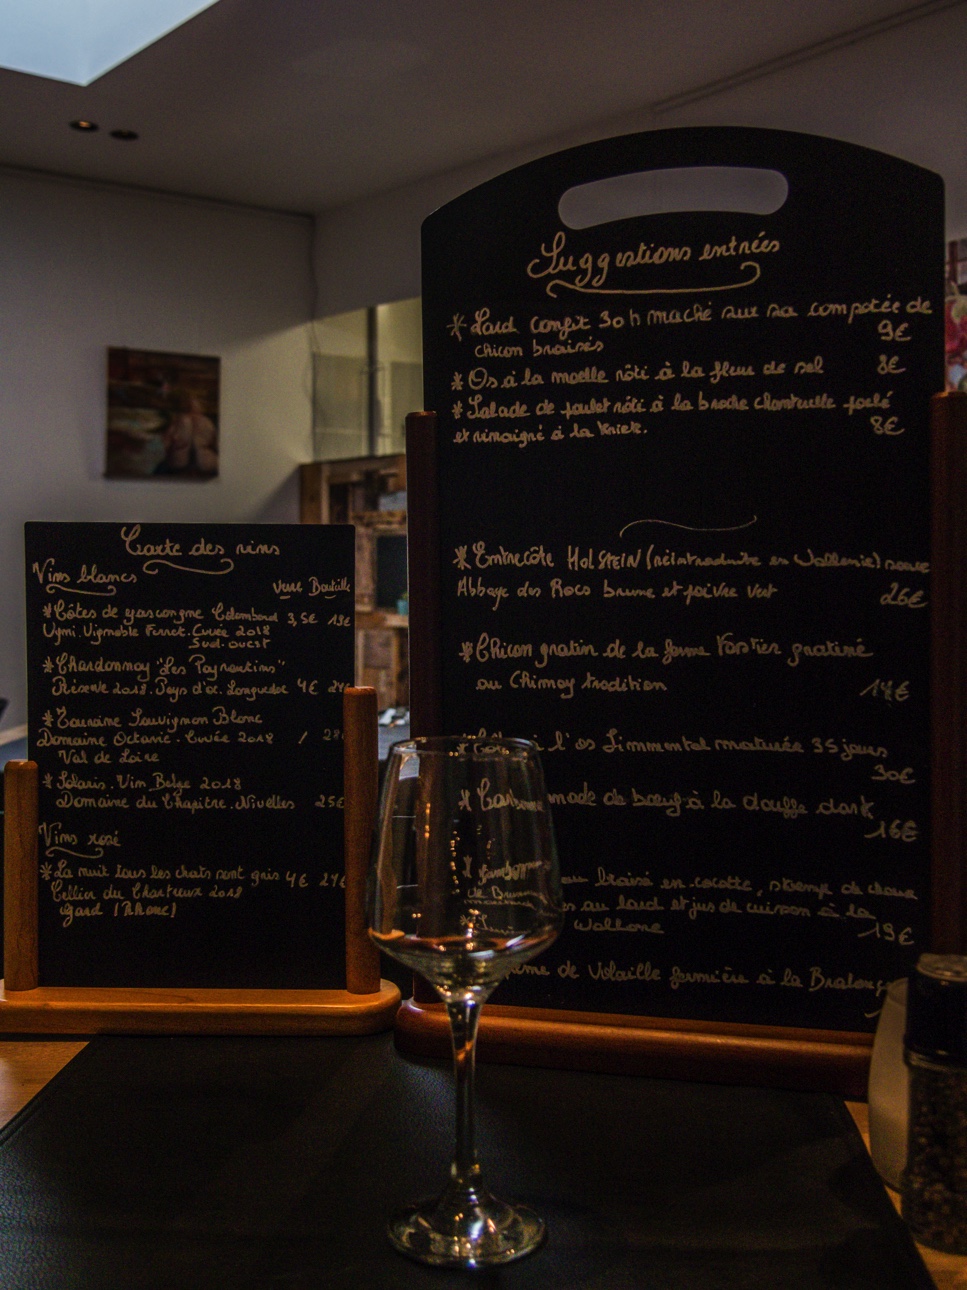 Carte des vins
Vins blancs
Verre Bouteille
*Côtes de gascongne Colombard 3,5€ 19€
Ugni. Vignoble Ferret. Cuvée 2018
Sud-ouest
*Chardonnay "Les Peyrautins"
Réserve 2018. Pays d'oc. Languedoc 4€
*Touraine Sauvignon Blanc
Domaine Octavie. Cuvée 2018 /
Val de Loire
*Solaris. Vin Belge 2018
Domaine du Chapitre. Nivelles 25€
Vins rosé
*La nuit tous les chats sont gris 4€ 21€
Cellier du Chartreux 2018
(Rhone)
Suggestions entrées
*Lard confit 30h maché sur sa compotée de
chicon braisés 9€
*Os à la moelle rôti à la fleur de sel 8€
*Salade de poulet rôti à la broche poelé
et vinaigré à la Kriek. 8€
*Entrecôte HolStein (réintroduite en Wallonie) sauce
Abbaye des Rocs brune et poivre vert 26€
*Chicon gratin de la ferme gratiné
au Chimay tradition
l'os Simmental maturée 35 jours
30€
*Carbonnade de bœuf à la douffe dark
16€
au braisé en cocotte, stoemp de
au lard et jus de cuisson à la
Wallone 19€
de Volaille fermière à la